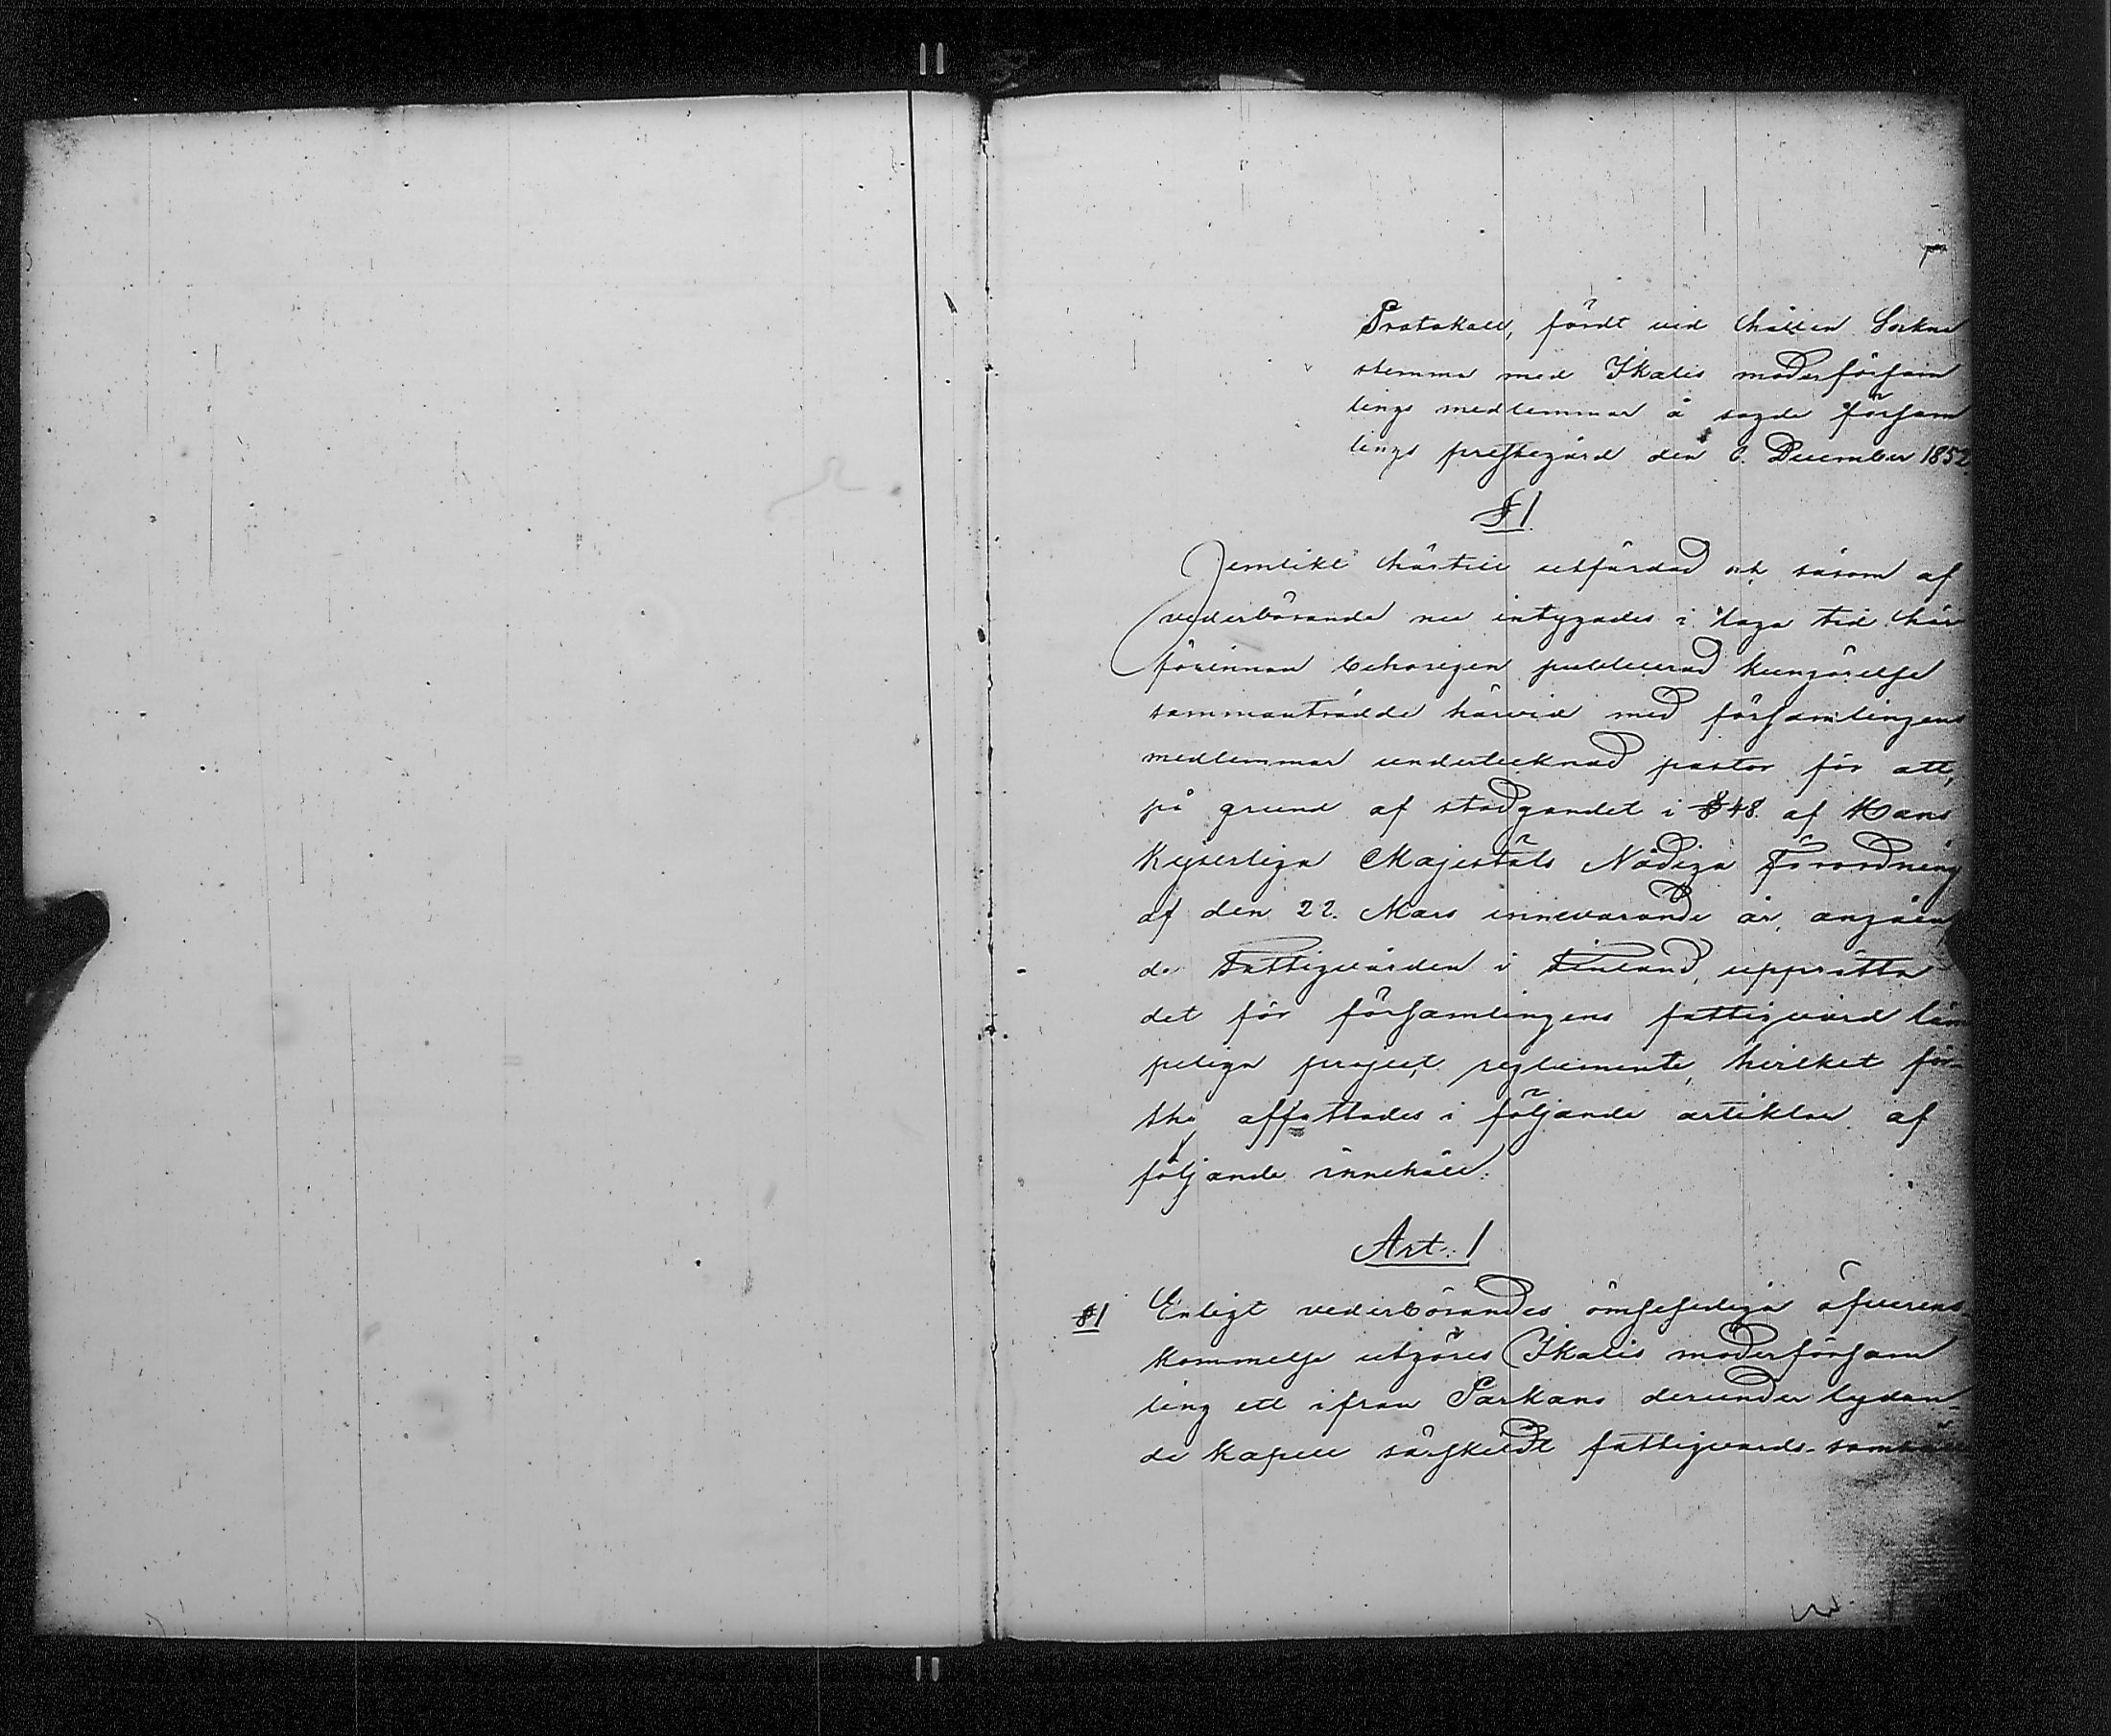 Protokoll, fördt vid hållen Sockne
stemma med Ikalis moderförsam
lings medlemmar å sagde försam
lings prestegård den 6. December 1852
§ 1
Jemlikt härtill utfärdad och såsom af
vederbörande nu intygades i laga tid här
förinnan behörigen publicerad kungörelse
sammanträdde härvid med församlingens
medlemmar undertecknad pastor för att,
på grund af stadgandet i § 48. af Hans
Kejserliga Majestäts Nådiga Förordning
af den 22. Mars innevarande år, angåen
de Fattigvården i Finland, upprätta
det för församlingens fattigvård läm
peliga project reglemente, hvilket för-
sta affattades i följande artiklar af
följande innehåll:
Art: 1
§ 1 Enligt vederbörandes ömsesidiga öfverens
kommelse utgöres Ikalis moderförsam
ling ett ifrån Parkano derunder lydan-
de kapell särskildt fattigvårds-samhälle